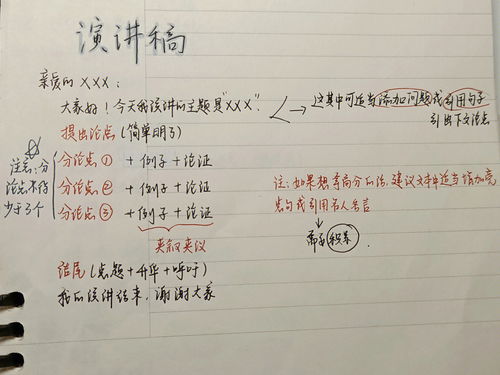 演讲稿
亲爱的XXX：
大家好！今天我演讲的主题是"XXX".
这其中可适当添加问题或引用句子
引出下文论点
提出论点(简单明了)
注意：分
论点不得
少于3个
分论点①+例子+论证
分论点②+例子+论证
分论点③+例子+论证
夹叙夹议
注：如果想拿高分的话，建议文中适当添加亮
点句或引用名人名言
需要积累.
结尾(点题+升华+呼吁)
我的演讲结束，谢谢大家